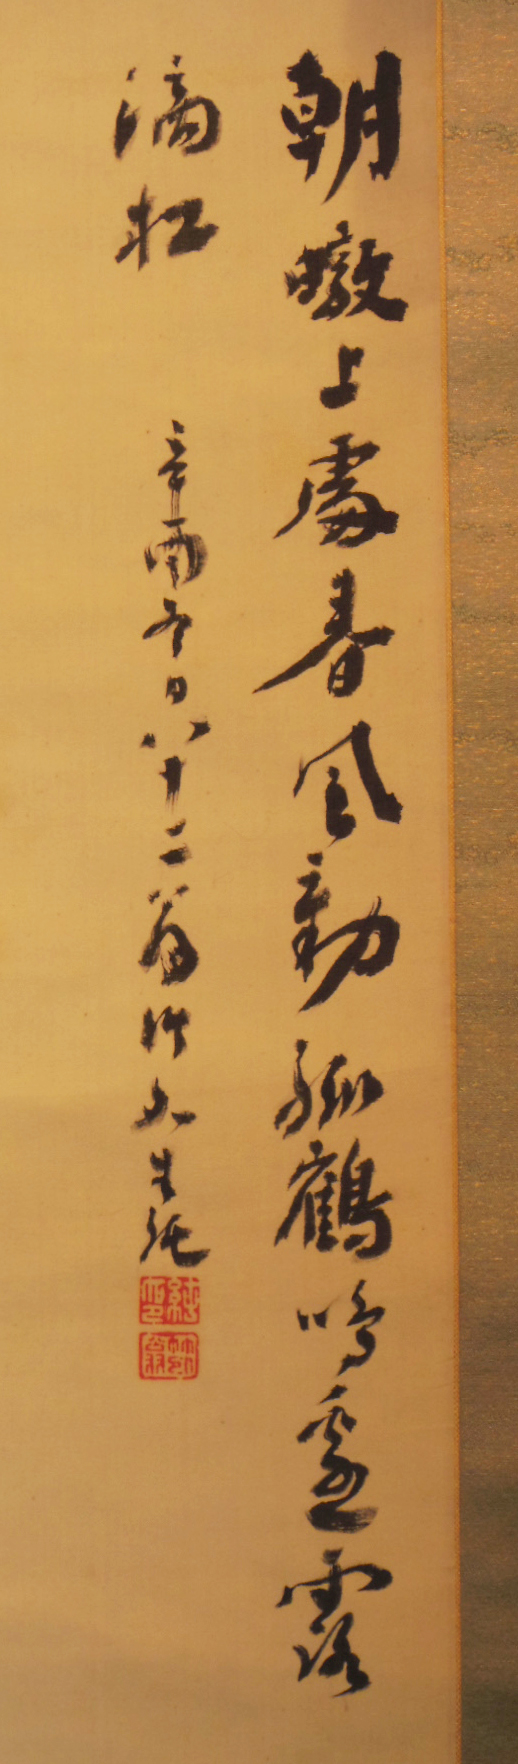 朝暾上處春風動孤鶴鳴邊露
滴松
辛酉冬日八十二翁竹如生純